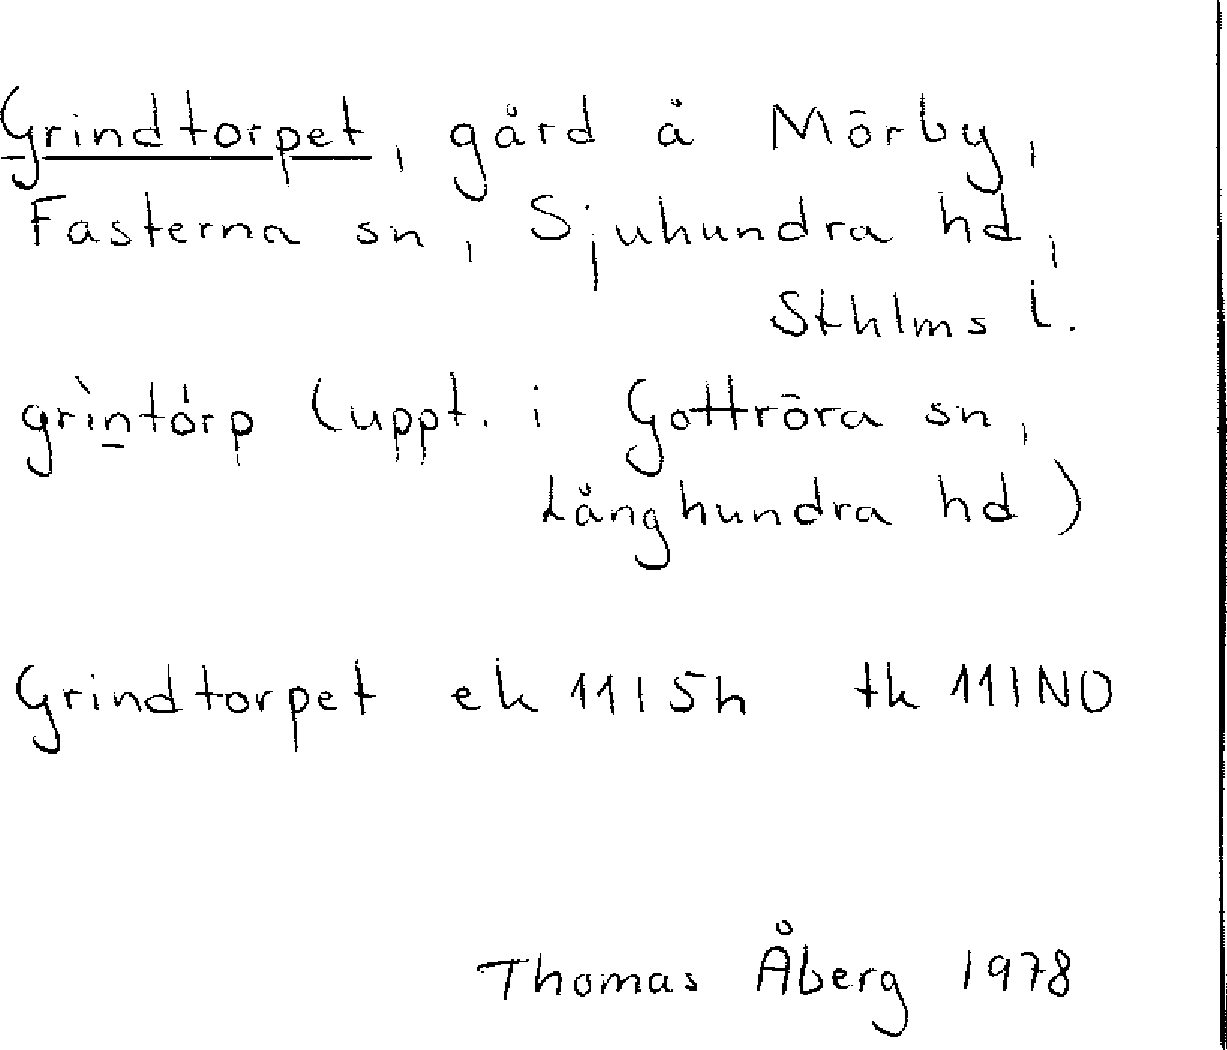 Grindtorpet, gård å Mörby,
Fasterna sn, Sjuhundra hd,
Sthlms l.
grìn̲tórp (uppt. i Gottröra sn,
Långhundra hd)
Grindtorpet ek 11I5h tk 11INO
Thomas Åberg 1978